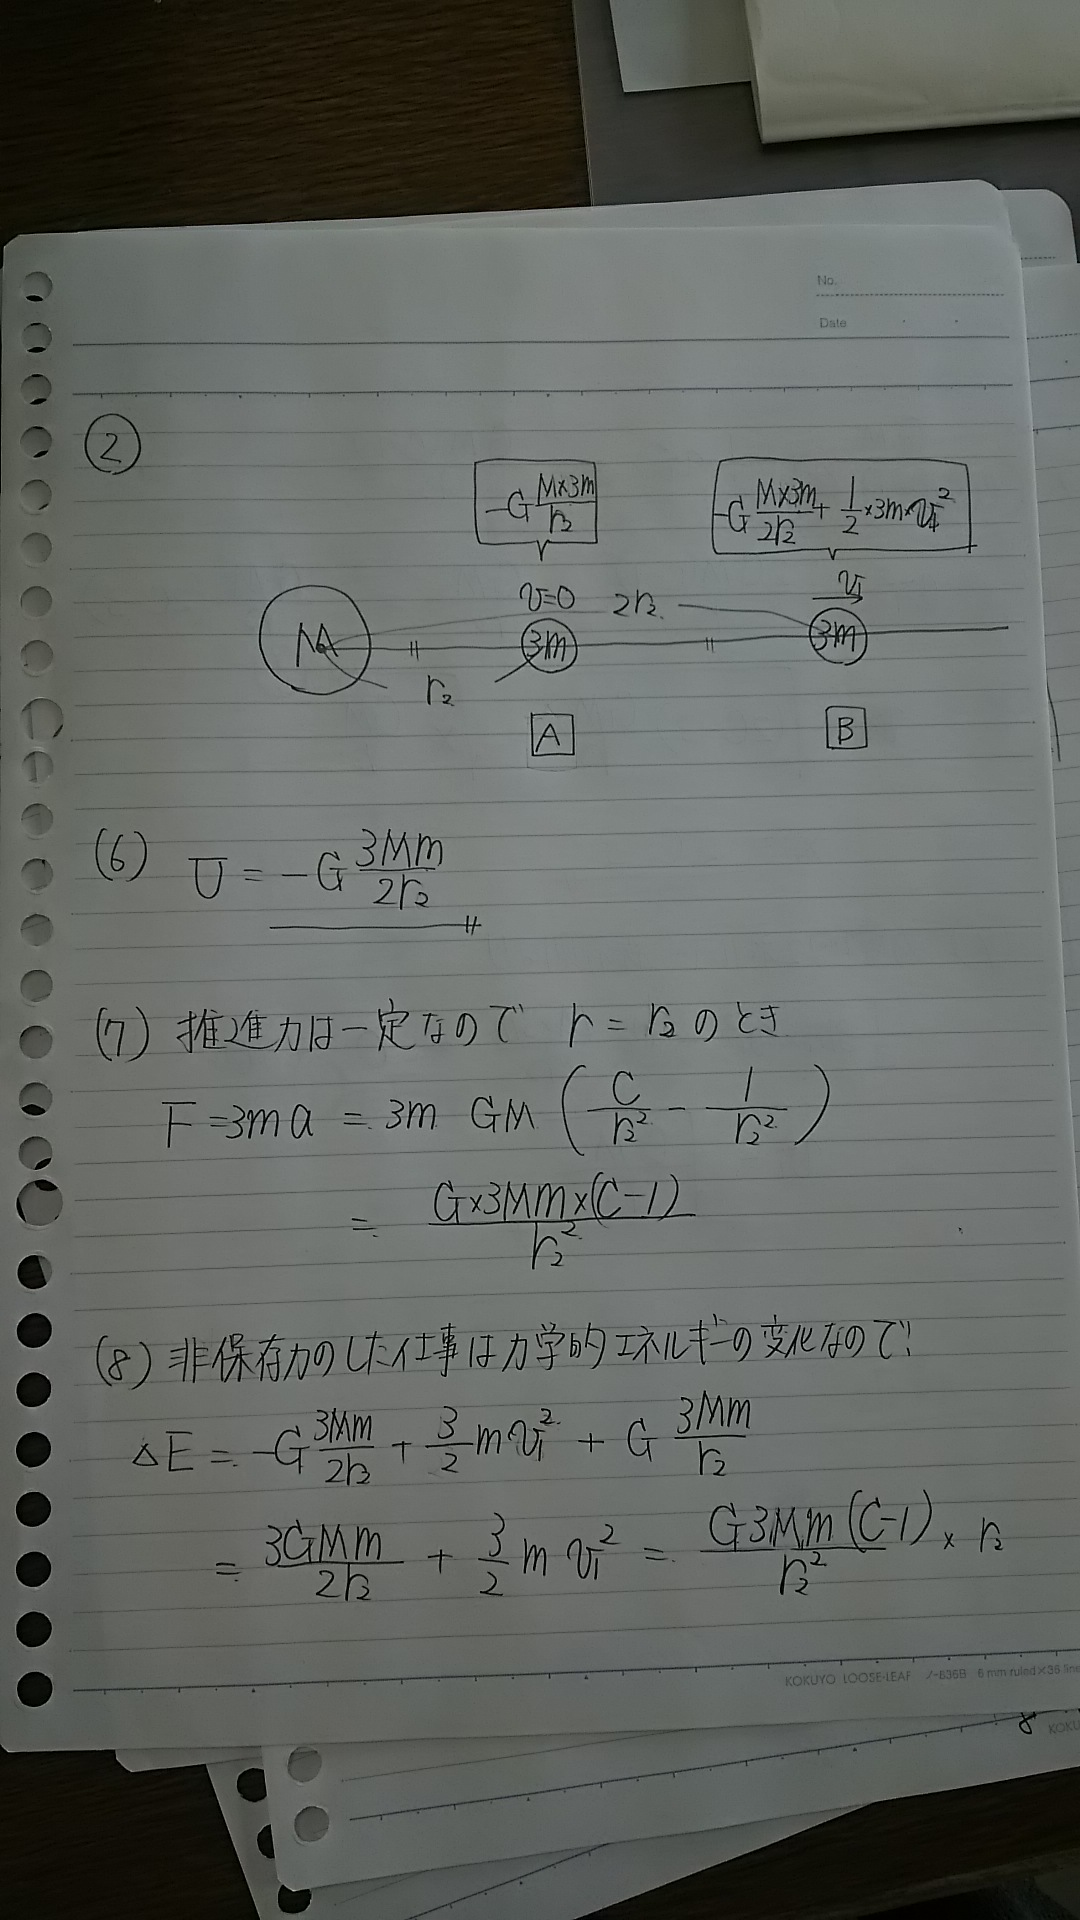 No.
Date
②
-G M×3m/r₂
-G M×3m/2r₂ + 1/2 ×3m×v₁²
v=0 2r₂ v₁
M 3m 3m
r₂
A B
(6) U = -G 3Mm/2r₂
(7) 推進力は一定なので r = r₂ のとき
F = 3ma = 3m GM (C/r₂² - 1/r₂²)
= G×3Mm×(C-1)/r₂²
(8) 非保存力のした仕事は力学的エネルギーの変化なので!
ΔE = -G 3Mm/2r₂ + 3/2 m v₁² + G 3Mm/r₂
= 3GMm/2r₂ + 3/2 m v₁² = G3Mm(C-1)/r₂² × r₂
KOKUYO LOOSE-LEAF ノ-836B 6 mm ruled×36 line
8 KOKU